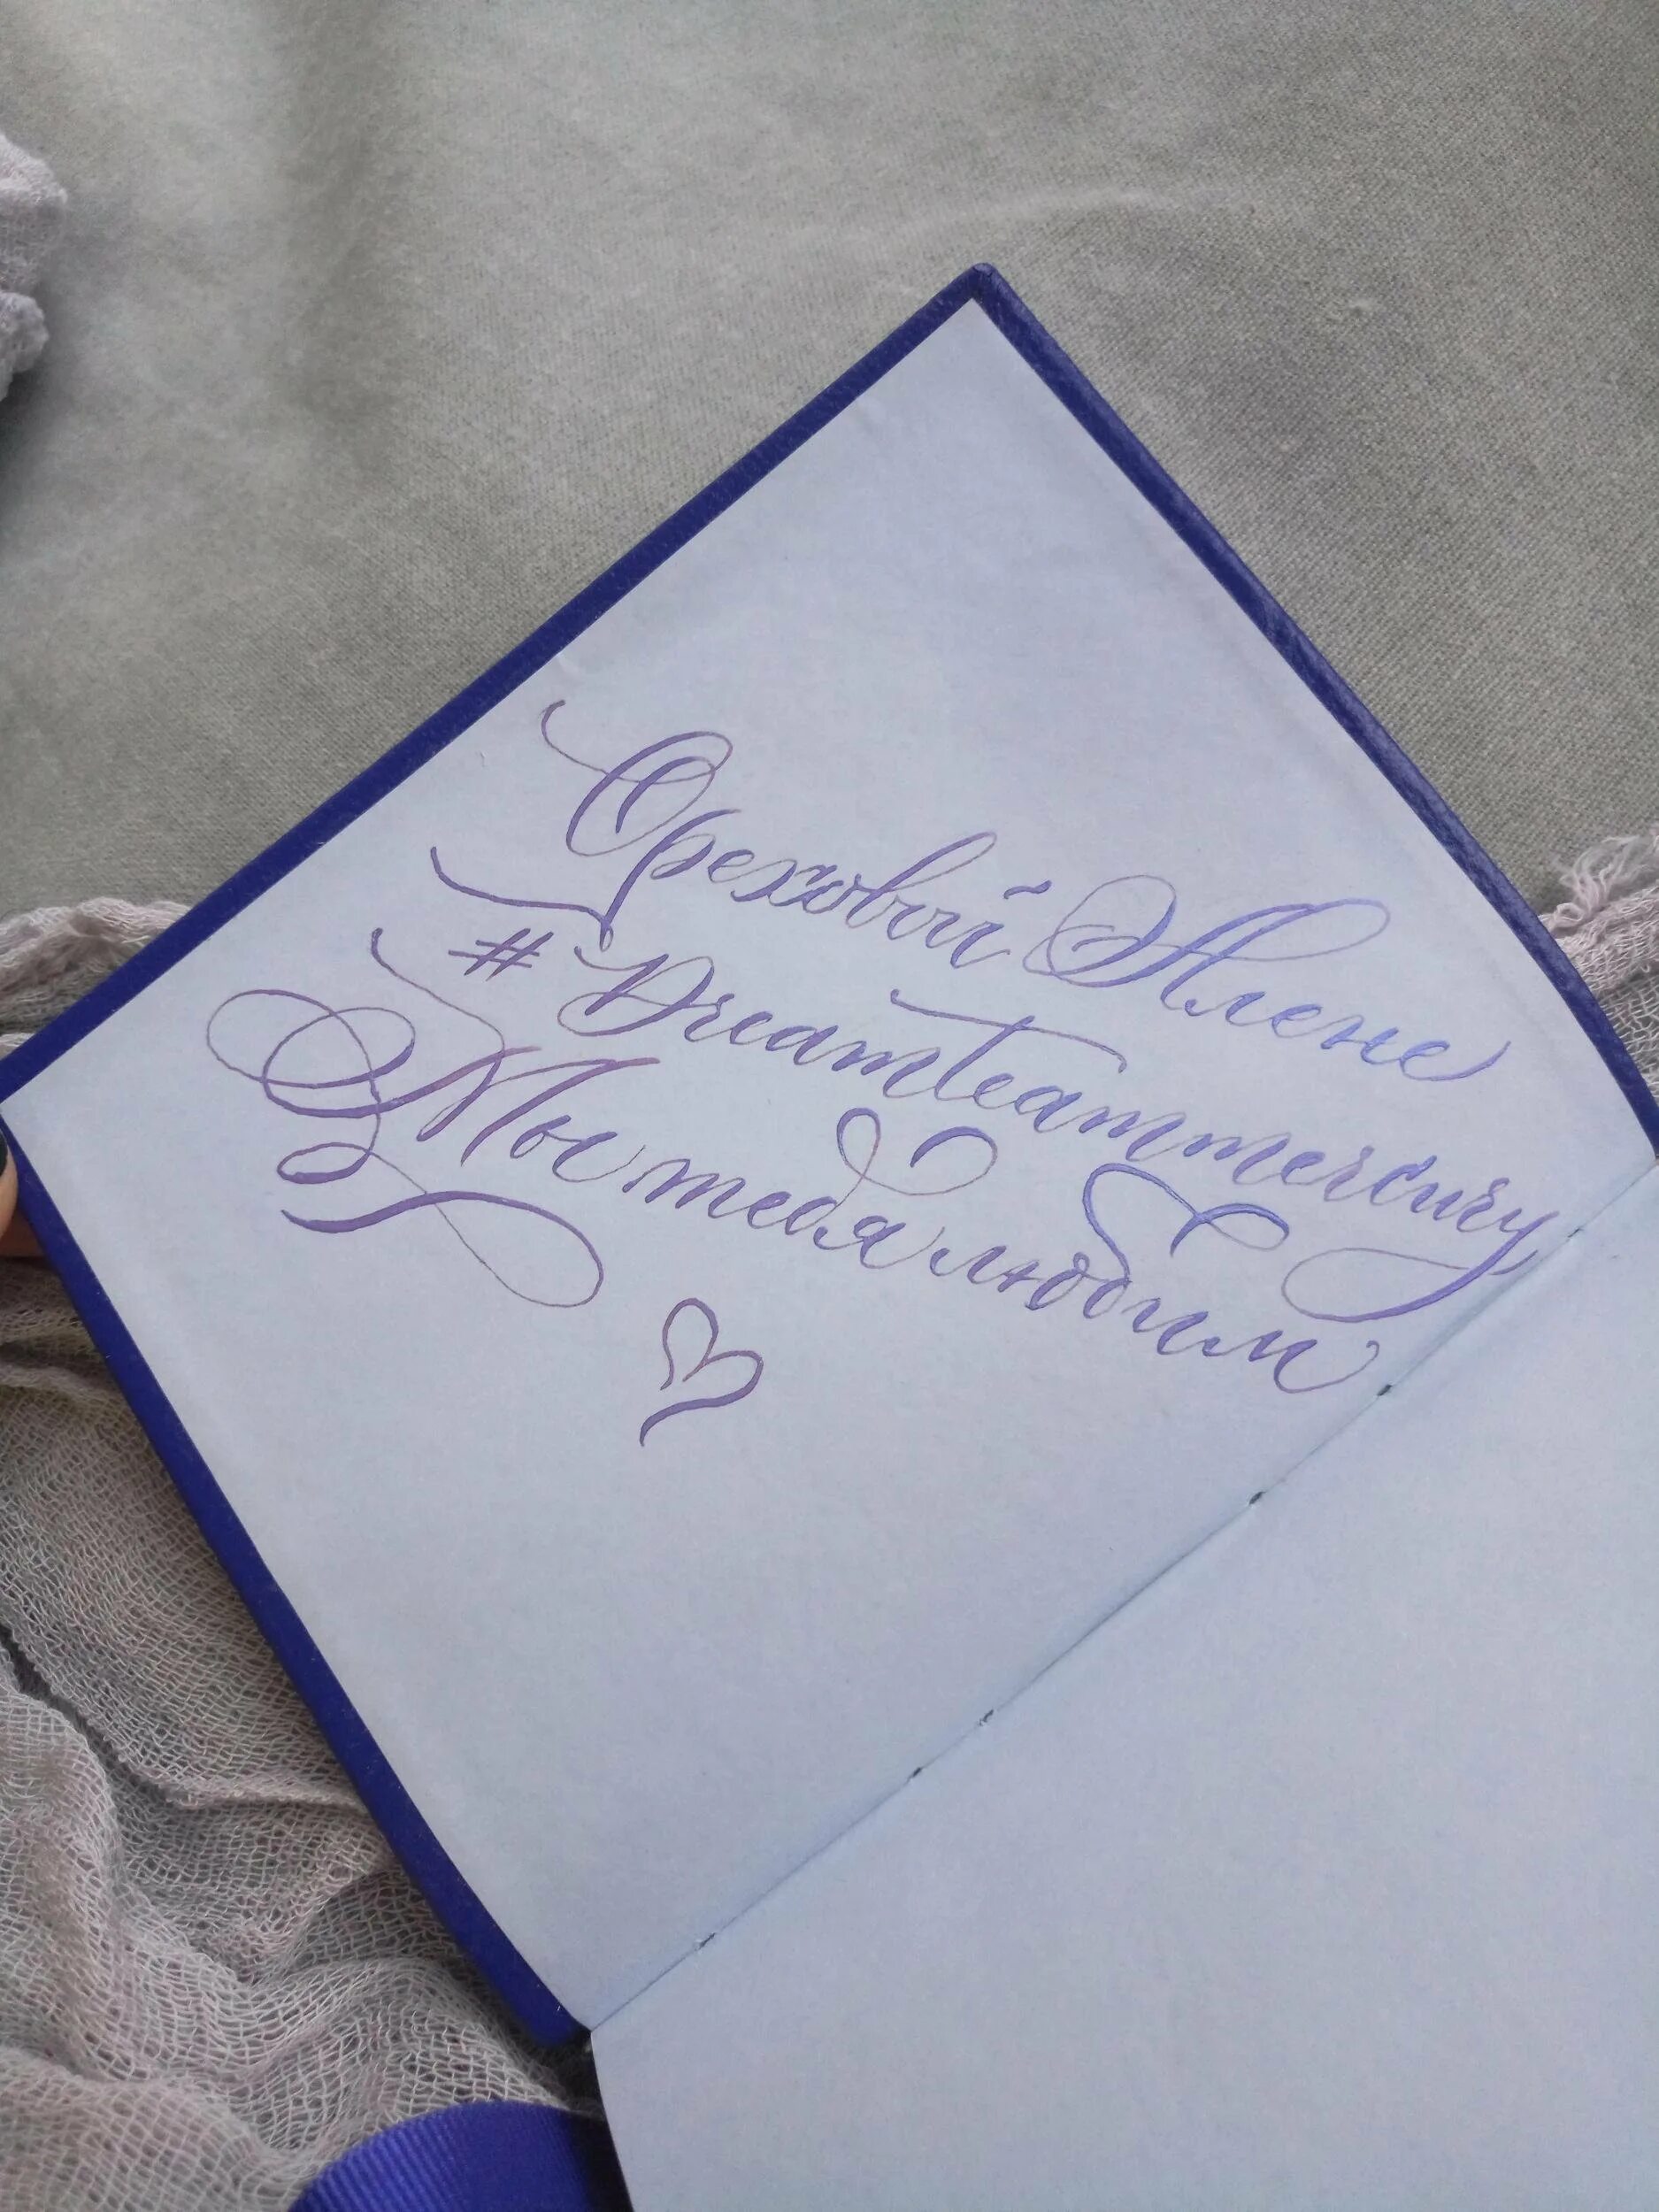 Ореховой Алене
#Dreamteammercury
Мы тебя любим